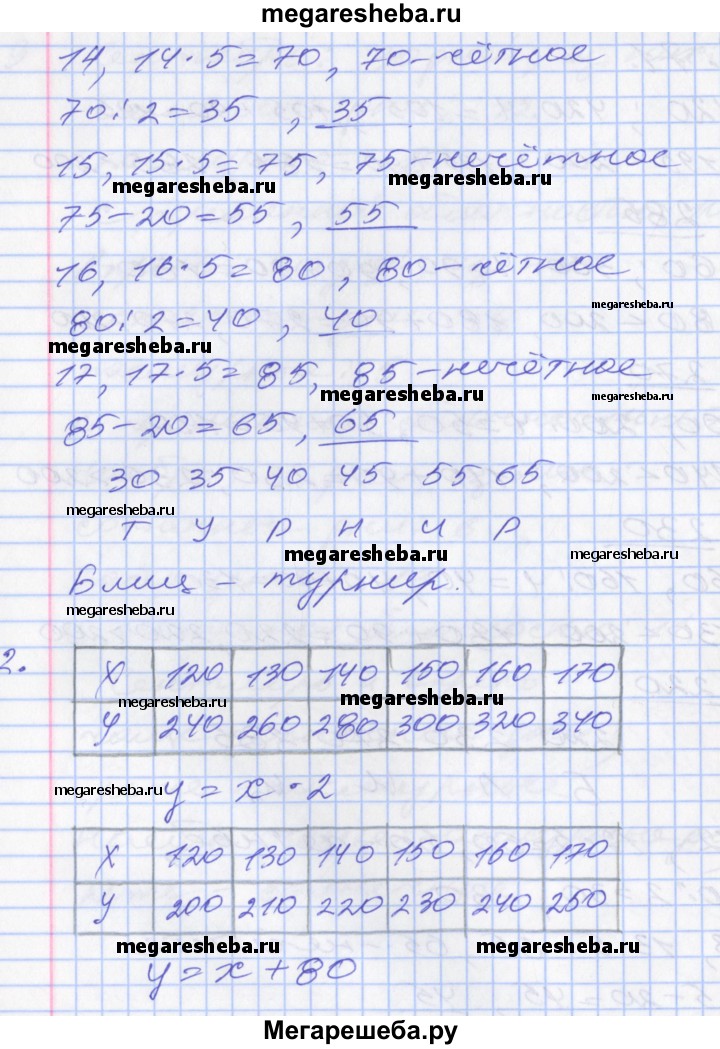 megaresheba.ru
14, 14·5=70, 70-чётное
70:2=35, 35
15, 15·5=75, 75-нечётное
megaresheba.ru megaresheba.ru
75-20=55, 55
16, 16·5=80, 80-чётное
megaresheba.ru
80:2=40, 40
megaresheba.ru
17, 17·5=85, 85-нечётное
megaresheba.ru megaresheba.ru
85-20=65, 65
30 35 40 45 55 65
megaresheba.ru
Т У Р Н И Р
megaresheba.ru megaresheba.ru
Блиц - турнир.
megaresheba.ru
2.
X 120 130 140 150 160 170
megaresheba.ru megaresheba.ru
У 240 260 280 300 320 340
megaresheba.ru
y=x·2
X 120 130 140 150 160 170
У 200 210 220 230 240 250
megaresheba.ru megaresheba.ru
y=x+80
Мегарешеба.ру